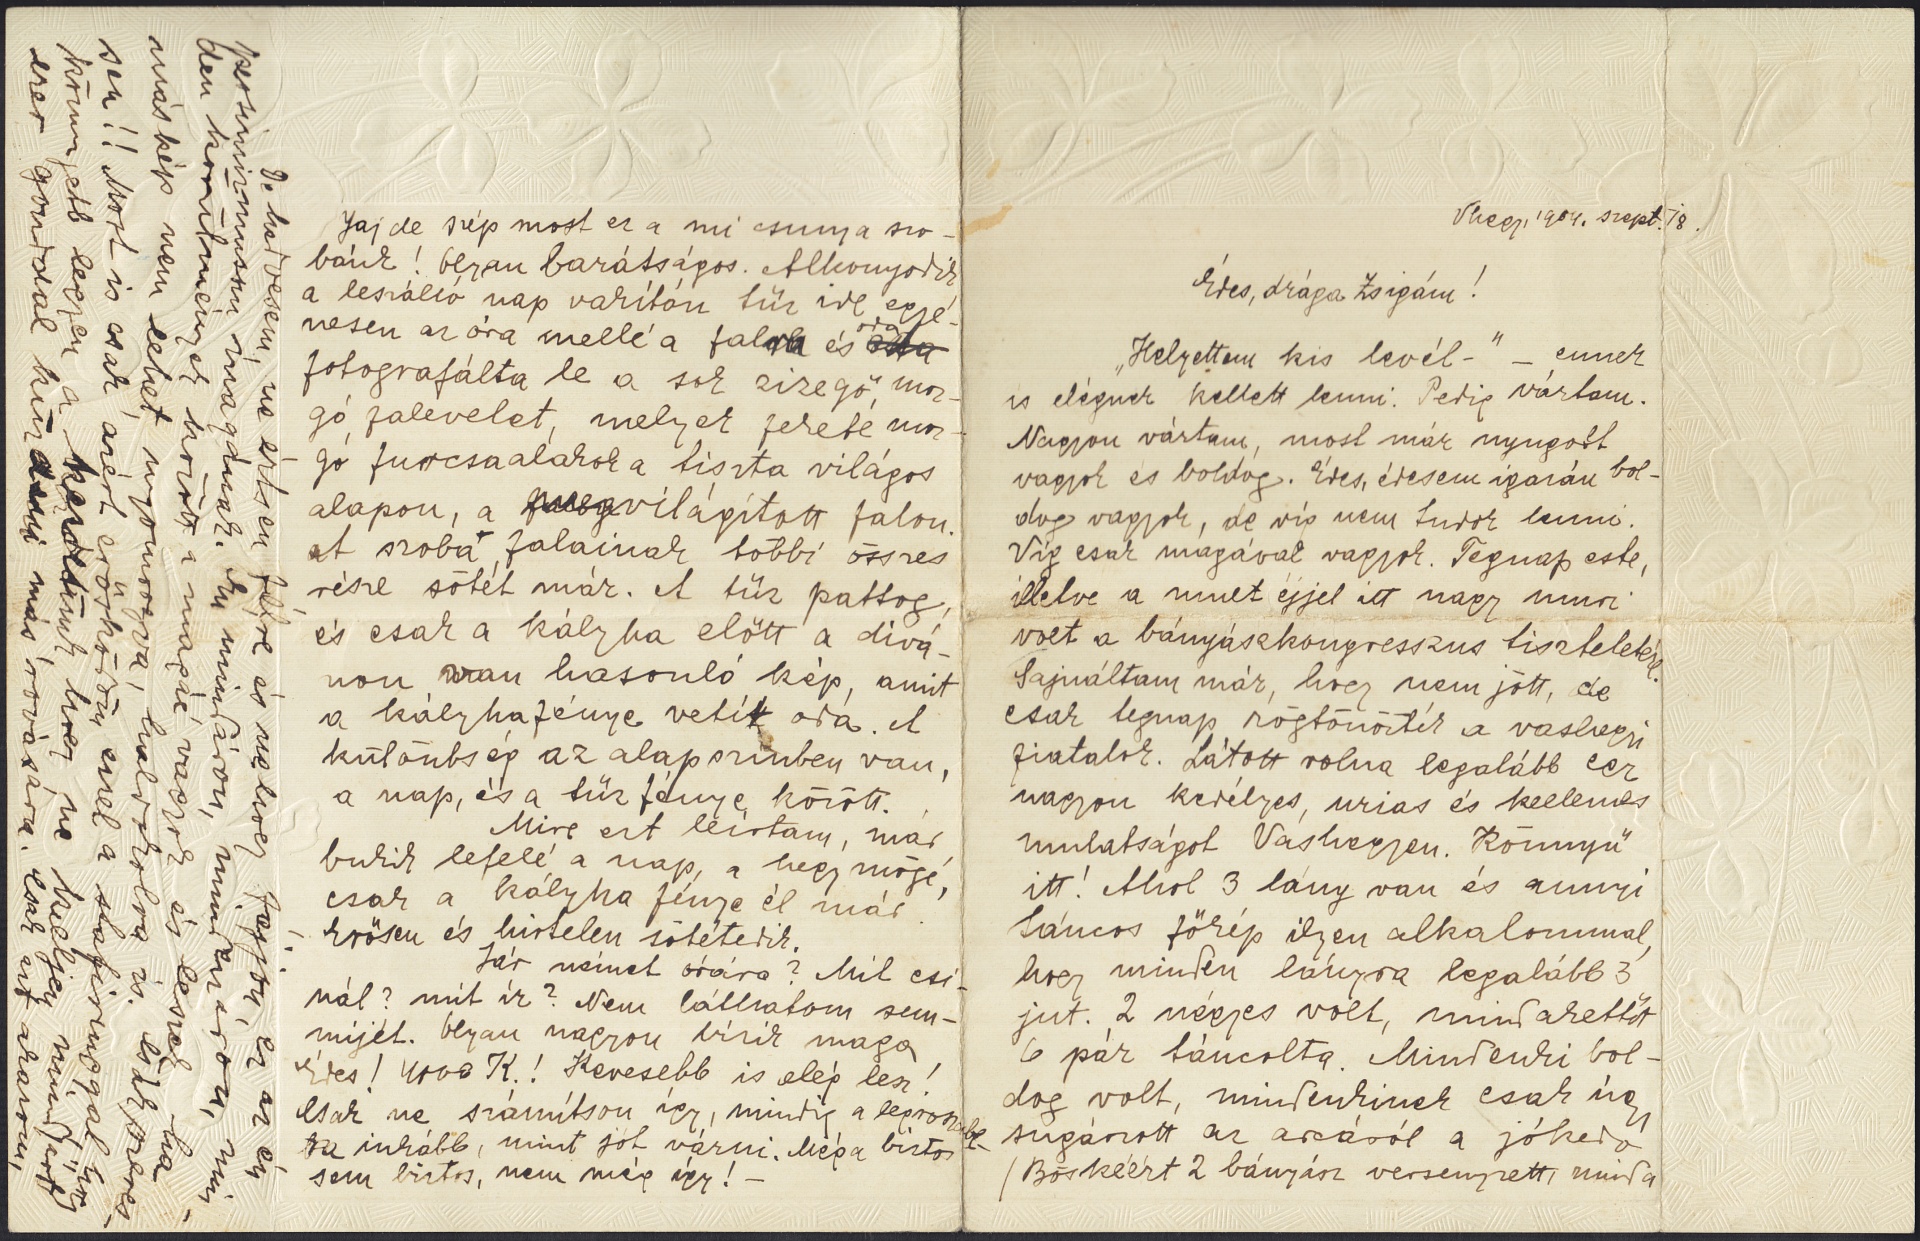 Vhegy, 1904. szept. 18.
Édes, drága Zsigám!
„Helyettem kis levél-" – ennek
is elégnek kellett lenni. Pedig vártam.
Nagyon vártam, most már nyugott
vagyok és boldog. Édes, édesem igazán bol-
dog vagyok, de víg nem tudok lenni.
Víg csak magával vagyok. Tegnap este,
illetve a mult éjjel itt nagy muri
volt a bányászkongresszus tiszteletére.
Sajnáltam már, hogy nem jött, de
csak tegnap rögtönözték a vashegyi
fiatalok. Látott volna legalább egy
nagyon kedélyes, urias és kellemes
mulatságot Vashegyen. Könnyű
itt! Ahol 3 lány van és annyi
táncos főkép ilyen alkalommal,
hogy minden lányra legalább 3
jut. 2 négyes volt, mindakettőt
6 pár táncolta. Mindenki bol-
dog volt, mindenkinek csak úgy
sugárzott az arcáról a jókedv
(Böskéért 2 bányász versenyzett, mind a
Jaj de szép most ez a mi csunya szo-
bánk! Olyan barátságos. Alkonyodik
a leszálló nap vakítón tűz ide egye-
nesen az óra mellé a falra és oda
fotografálta le a sok zizegő, mor-
gó falevelet, melyek fekete mor-
gó furcsa alakok a tiszta világos
alapon, a megvilágított falon.
A szoba falainak többi összes
része sötét már. A tűz pattog,
és csak a kályha előtt a divá-
non van hasonló kép, amit
a kályha fénye vetít oda. A
különbség az alapszinben van,
a nap, és a tűz fénye között.
Mire ezt leirtam, már
bukik lefelé a nap, a hegy mögé,
csak a kályha fénye él már.
Erősen és hirtelen sötétedik.
Jár német órára? Mit csi-
nál? mit ír? Nem láthatom sem-
mijét. Olyan nagyon bízik maga
Édes! 4000 K.! Kevesebb is elég lesz!
Csak ne számítson így, mindig a legrosszabb-
ra inkább, mint jót várni. Még a biztos
sem biztos, nem még így! –
De kedvesem, ne értsen félre és nehogy fájjon, ez az én
pesszimizmusom magának. Én mindáron, minden áron, min-
den körülmények között a magáé vagyok és leszek, ha
máskép nem lehet nyomorogva, haldokolva is. Csak szeres-
sen!! Most is csak azért erőrködöm ezzel a slafirunggal hogy
könnyebb legyen a kezdetünk, hogy ne kelljen mindjárt
ezer gonddal küzdeni más rovására. Csak ezt akarom,